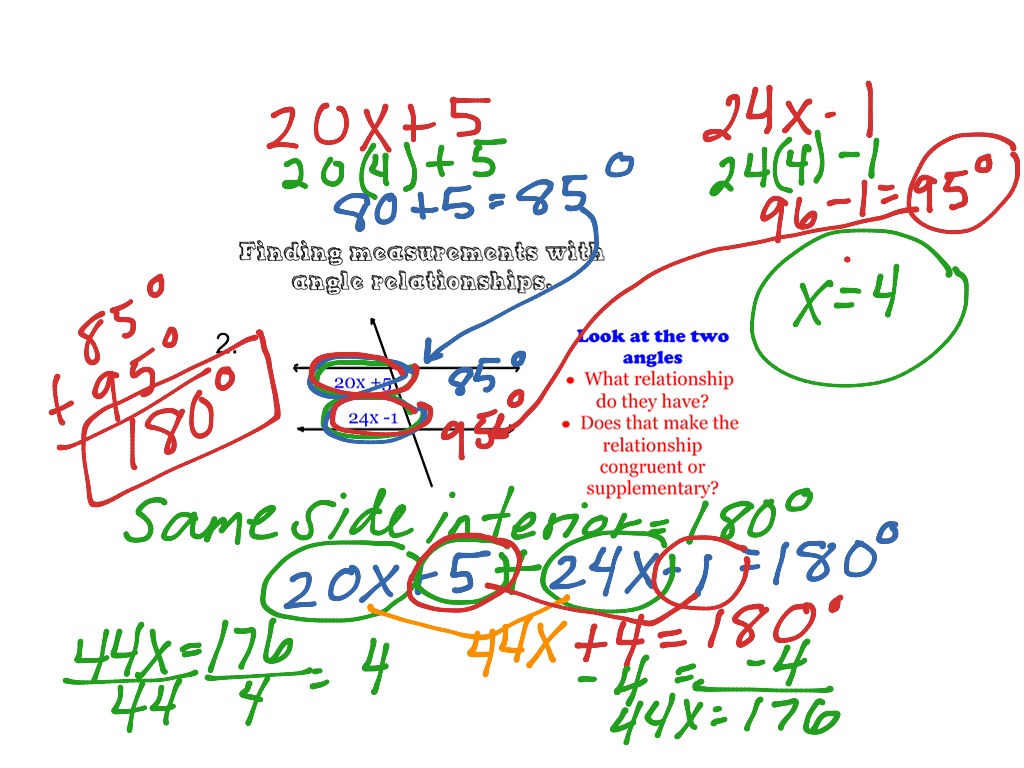 20x+5
20(4)+5
80+5=85°
24x-1
24(4)-1
96-1=95°
x=4
Finding measurements with
angle relationships.
85°
+95°
180°
2.
20x +5
24x -1
85°
95°
Look at the two
angles
• What relationship
do they have?
• Does that make the
relationship
congruent or
supplementary?
Same side interior=180°
20x+5+24x-1=180°
44x+4=180°
-4=-4
44x=176
44x=176
44 4 = 4